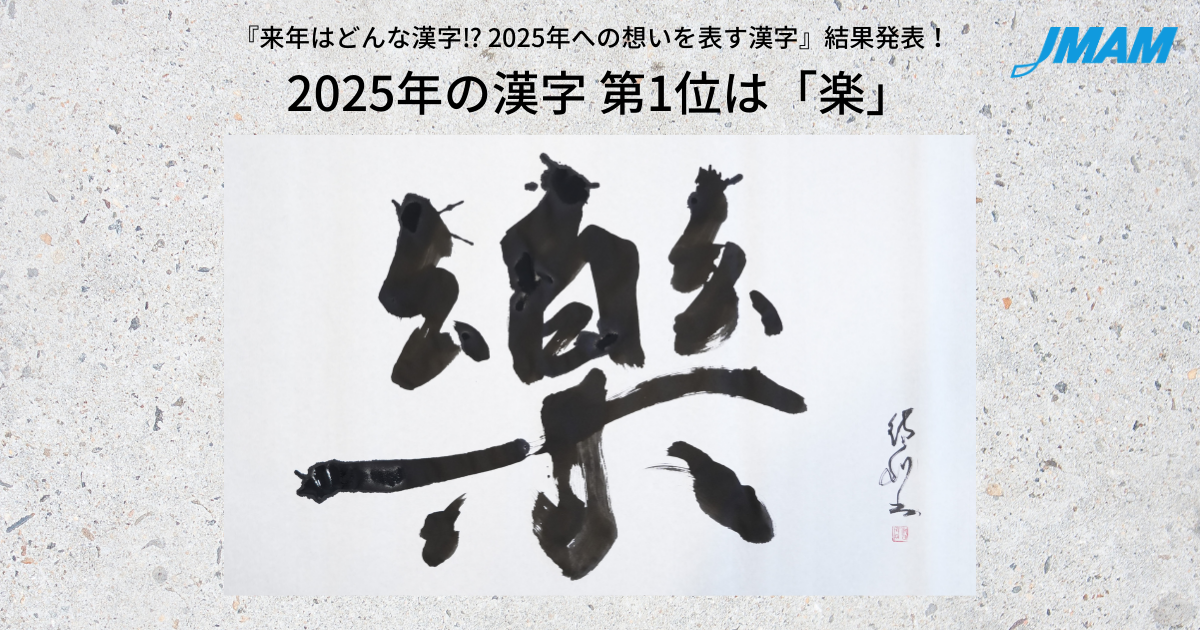 『来年はどんな漢字!? 2025年への想いを表す漢字』結果発表！
JMAM
2025年の漢字 第1位は「楽」
樂